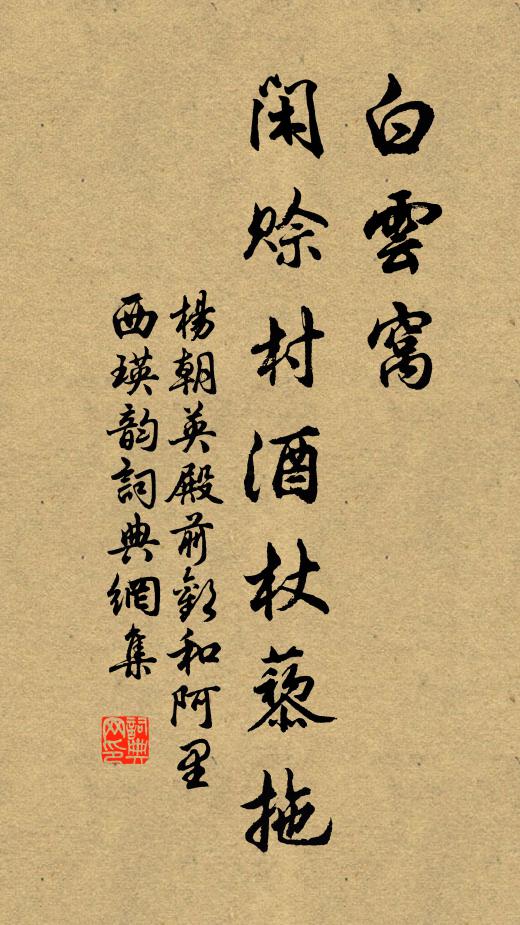 白雲窩
閑賒村酒杖藜拖
楊朝英殿前歡和阿里
西瑛韵詞典網集
詞典网印